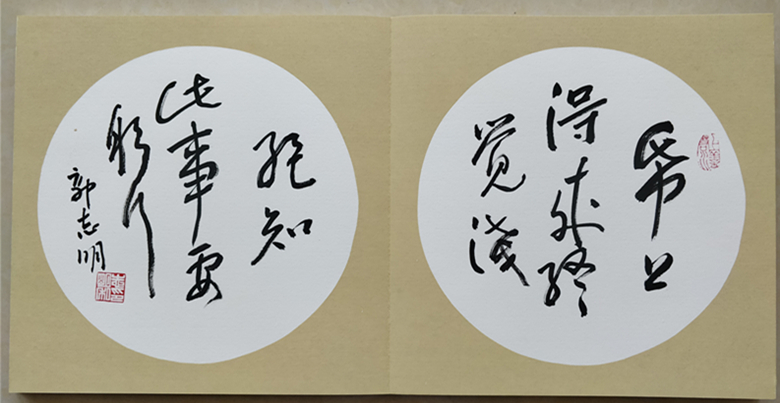 帋上
得来终
觉淺
绝知
此事要
躬行
郭志明